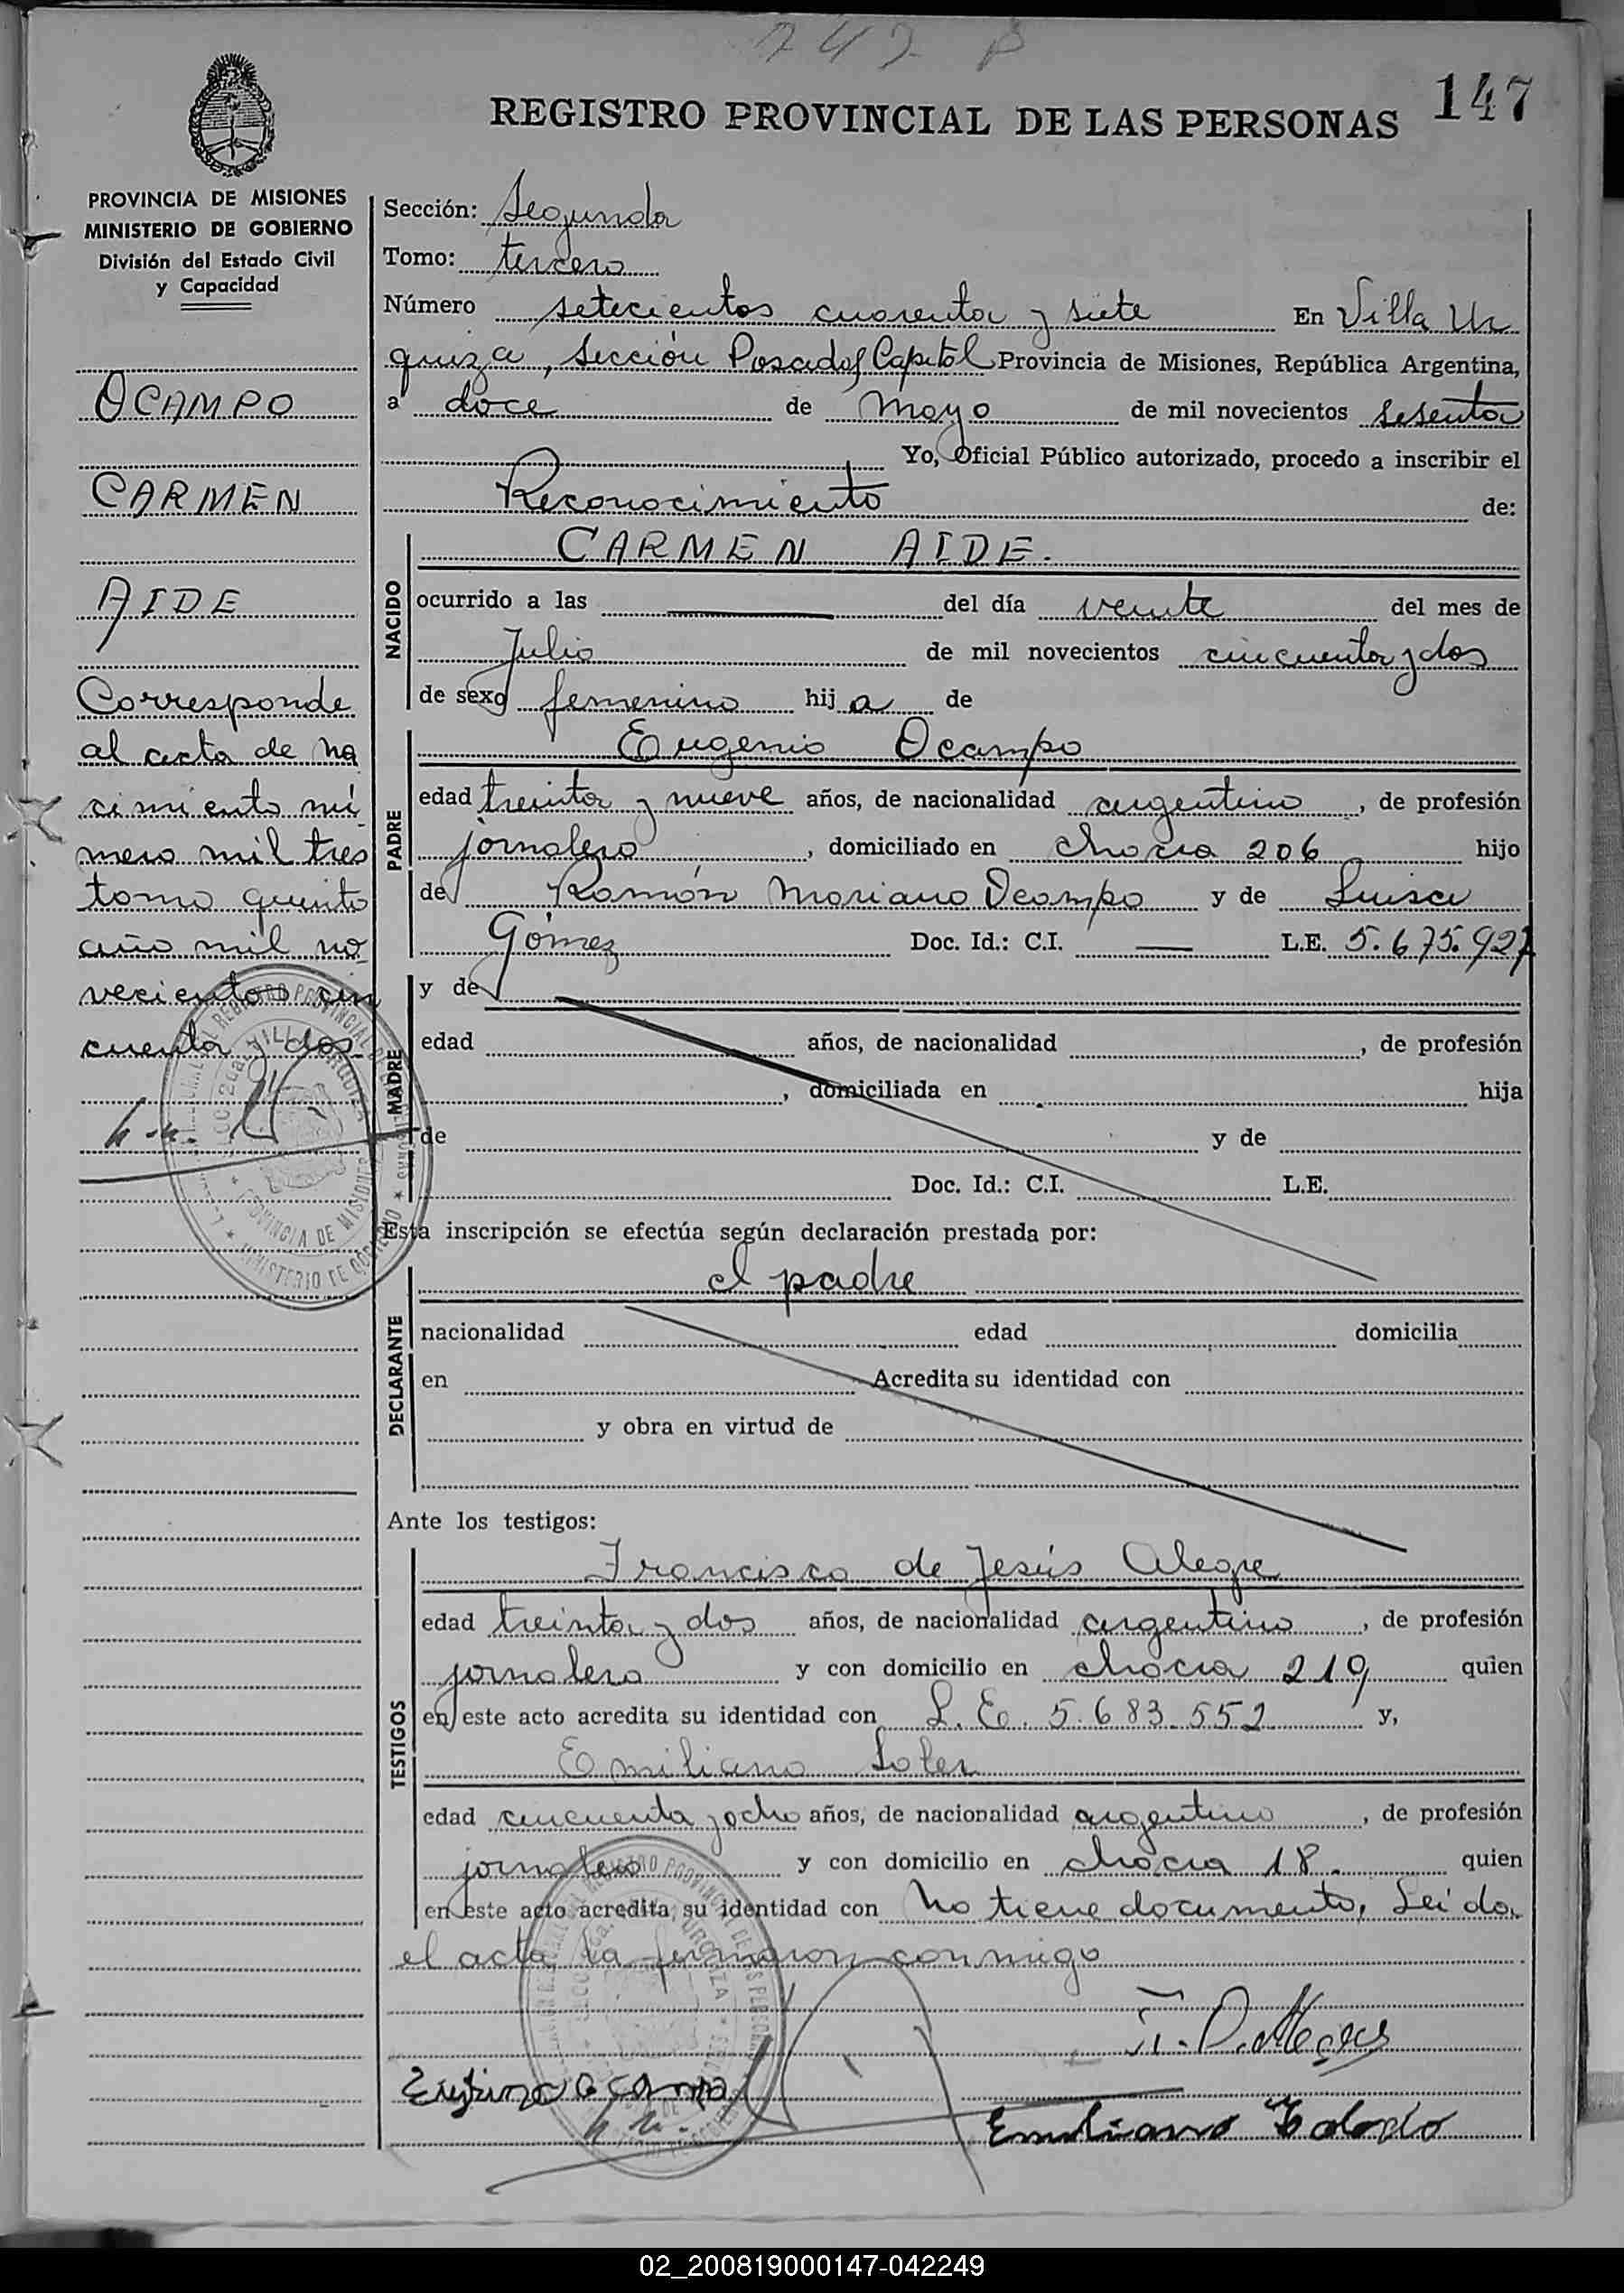 747 B
147
REGISTRO PROVINCIAL DE LAS PERSONAS
PROVINCIA DE MISIONES
MINISTERIO DE GOBIERNO
División del Estado Civil
y Capacidad
OCAMPO
CARMEN
AIDE
Corresponde
al acta de na
cimiento nú
mero mil tres
tomo quinto
año mil no
vecientos cin
cuenta y dos
Sección: Segunda
Tomo: tercero
Número setecientos cuarenta y siete En Villa Ur
quiza, Sección Posadas Capital Provincia de Misiones, República Argentina,
a doce de Mayo de mil novecientos sesenta
Yo, Oficial Público autorizado, procedo a inscribir el
Reconocimiento de:
NACIDO
CARMEN AIDE.
ocurrido a las del día veinte del mes de
Julio de mil novecientos cincuenta y dos
de sexo femenino hija de
PADRE
Eugenio Ocampo
edad treinta y nueve años, de nacionalidad argentino, de profesión
jornalero, domiciliado en chacra 206 hijo
de Ramón Mariano Ocampo y de Luisa
Gómez Doc. Id.: C.I. — L.E. 5.675.927
MADRE
y de
edad años, de nacionalidad , de profesión
, domiciliada en hija
de y de
Doc. Id.: C.I. L.E.
Esta inscripción se efectúa según declaración prestada por:
DECLARANTE
el padre
nacionalidad edad domicilia
en Acredita su identidad con
y obra en virtud de
Ante los testigos:
TESTIGOS
Francisco de Jesús Alegre
edad treinta y dos años, de nacionalidad argentino, de profesión
jornalero y con domicilio en chacra 219 quien
en este acto acredita su identidad con L.E. 5.683.552 y,
Emiliano Soler
edad cincuenta y ocho años, de nacionalidad argentino, de profesión
jornalero y con domicilio en chacra 18. quien
en este acto acredita su identidad con No tiene documento, Leida
el acta la firmaron conmigo
Emiliano
02_200819000147-042249